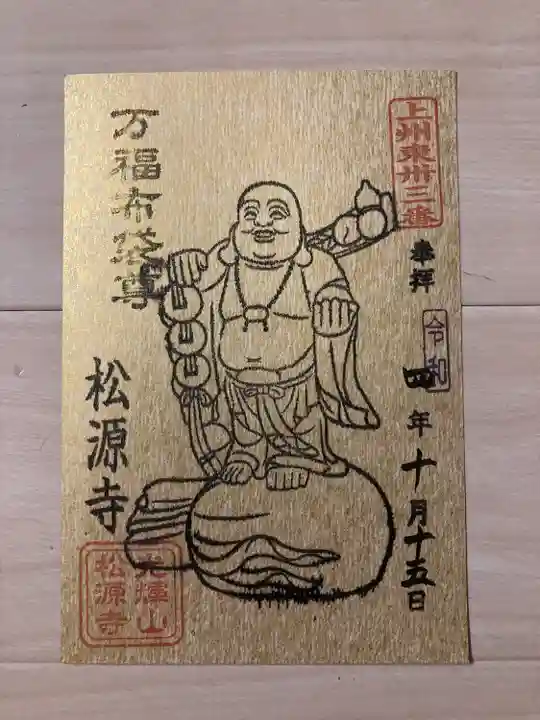 上州東丗三番
奉拝
令和
四年十月十五日
万福布袋尊
松源寺
光輝山
松源寺